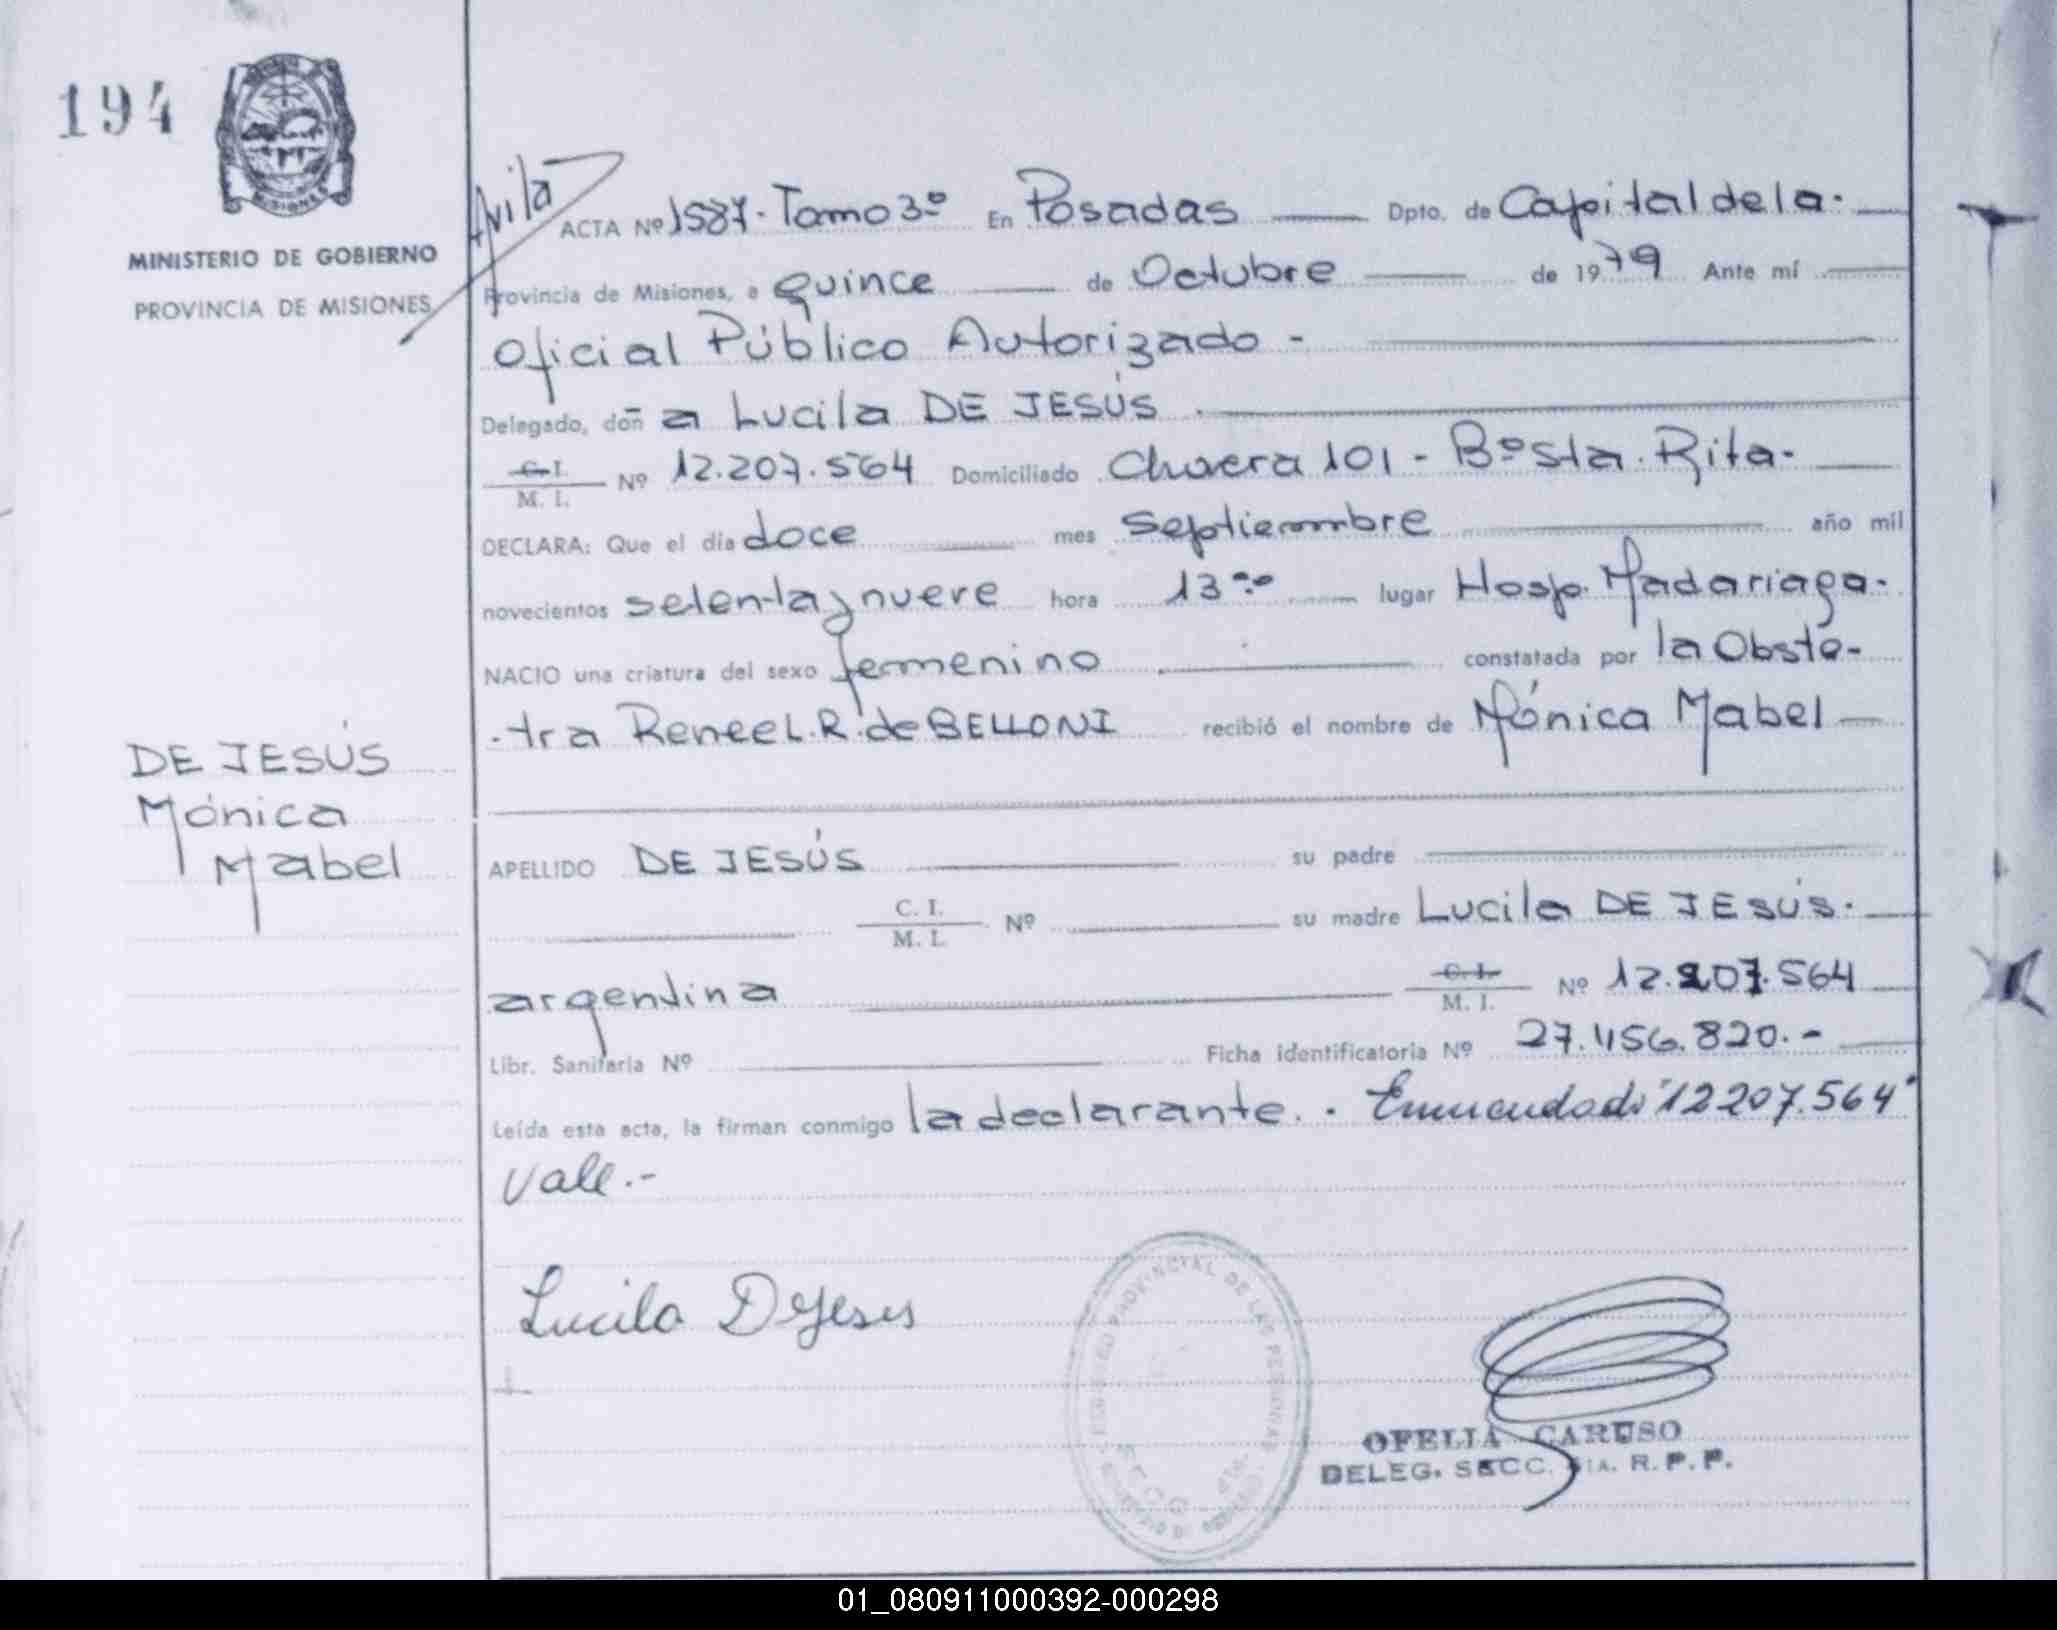 194
MISIONES
MINISTERIO DE GOBIERNO
PROVINCIA DE MISIONES
Avila
ACTA Nº 1587. Tomo 3º En Posadas Dpto. de Capital de la.
Provincia de Misiones, a quince de Octubre de 1979 Ante mí
Oficial Público Autorizado -
Delegado, doñ a Lucila DE JESÚS
C. I.
M. I.
Nº 12.207.564 Domiciliado Chacra 101 - Bº Sta. Rita.
DECLARA: Que el día doce mes Septiembre año mil
novecientos setenta y nueve hora 13 lugar Hosp. Madariaga.
NACIO una criatura del sexo femenino constatada por la Obste-
-tra Renee L. R. de BELLONI recibió el nombre de Mónica Mabel
DE JESÚS
Mónica
Mabel
APELLIDO DE JESÚS su padre
C. I.
M. I.
Nº su madre Lucila DE JESÚS.
argentina
C. I.
M. I.
Nº 12.207.564
Libr. Sanitaria Nº Ficha identificatoria Nº 27.456.820.-
Leída esta acta, la firman conmigo la declarante. - Enmendado "12207.564"
Vale.-
Lucila DeJesus
REGISTRO PROVINCIAL DE LAS PERSONAS
OFELIA CARUSO
DELEG. SECC. R. P. P.
01_080911000392-000298